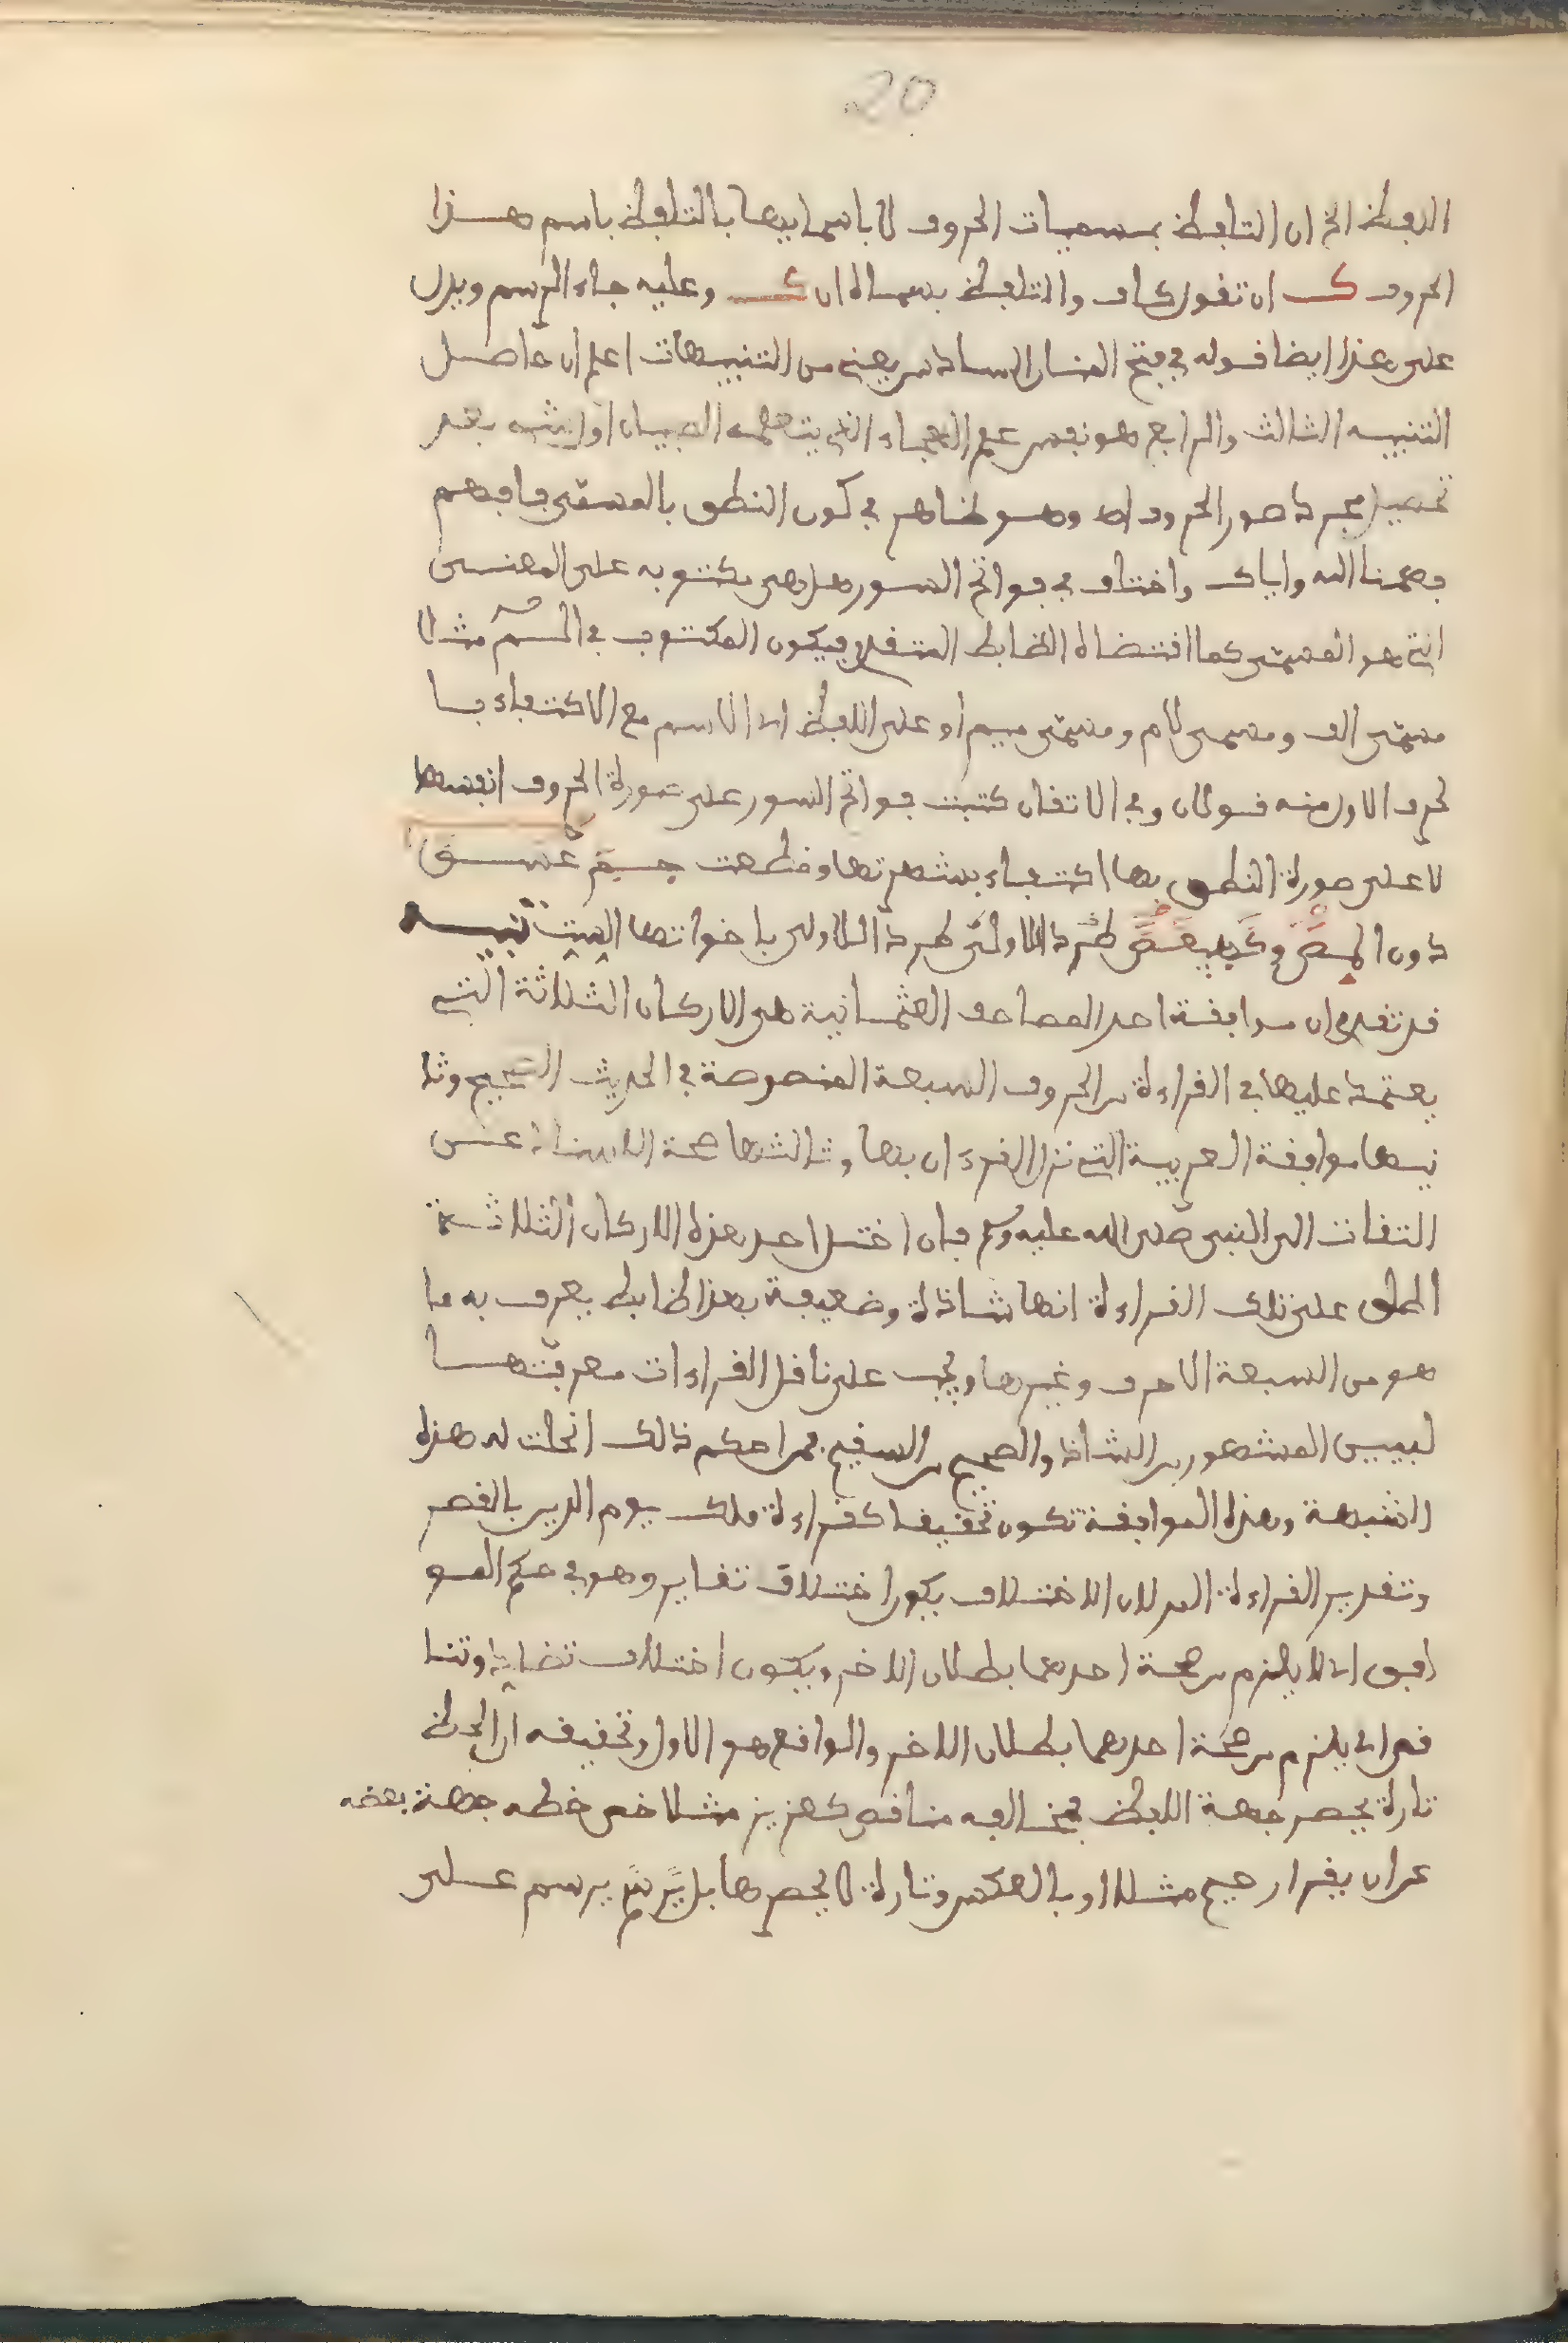 20
اللفظ الخ ان التلفظ بمسميات الحروف لا باسمايها بالتلفظ باسم هذا
الحروف ك ان تقول كاف والتلفظ بمسماه ان ك وعليه جاء الرسم ويدل
على هذا ايضا قوله في فتح المنان السادس يعني من التنبيهات اعلم ان حاصل
التنبيه الثالث والرابع هو نفس علم الهجاء الذي يتعلمه الصبيان اول بعد
تحصيل مجرد صور الحروف اه وهو ظاهر في كون النطق بالمسمى فافهم
فهمنا الله واياك واختلف في فواتح السور هل هي مكتوبه على المعنى
الذي هو المسمى كما اقتضاه الضابط المتقدم فيكون المكتوب في الم مثلا
مسمى الف ومسمى لام ومسمى ميم او على اللفظ اي الاسم مع الاكتفاء با
لحرف الاول منه قولان وفي الاتقان كتبت فواتح السور على صورة الحروف انفسها
لا على صورة النطق بها اكتفاء بشهرتها وقطعت حم عسق
دون المص وكهيعص طردا للاولى باخواتها الست تنبيه
قد تقدم ان موافقة احد المصاحف العثمانية هي الاركان الثلاثة التي
يعتمد عليها في القراءة من الحروف السبعة المنصوصة في الحديث الصحيح وثا
نيها موافقة العربية التي نزل القرءان بها وثالثها صحة الاسناد عن
الثقات الى النبي صلى الله عليه وسلم فان اختل احد هذه الاركان الثلاثة
اطلق على تلك القراءة انها شاذة وضعيفة بهذا لضابط يعرف به ما
هو من السبعة الاحرف وغيرها ويجب على ناقل القراءات معرفتها
ليميز المشهور من الشاذ والصحيح من السقيم فمن احكم ذالك انجلت له هذه
الشبهة وهذه الموافقة تكون تحقيقا كقراءة ملك يوم الدين بالقصر
وتقدير القراءة المد لان الاختلاف يكون اختلاف تغاير وهو في حكم المو
افق اي لا يلزم من صحة احدهما بطلان الاخر ويكون اختلاف تضاد وتنا
قض اي يلزم من صحة احدهما بطلان الاخر والواقع هو الاول وتحقيقه ان الخط
تارة يحصر جهة اللفظ فمخالفه مناقض كعزيز مثلا خص خطه جهة بعضه
عن ان يقرا رحيم مثلا او بالعكس وتارة لا يحصرها بل يرسم على